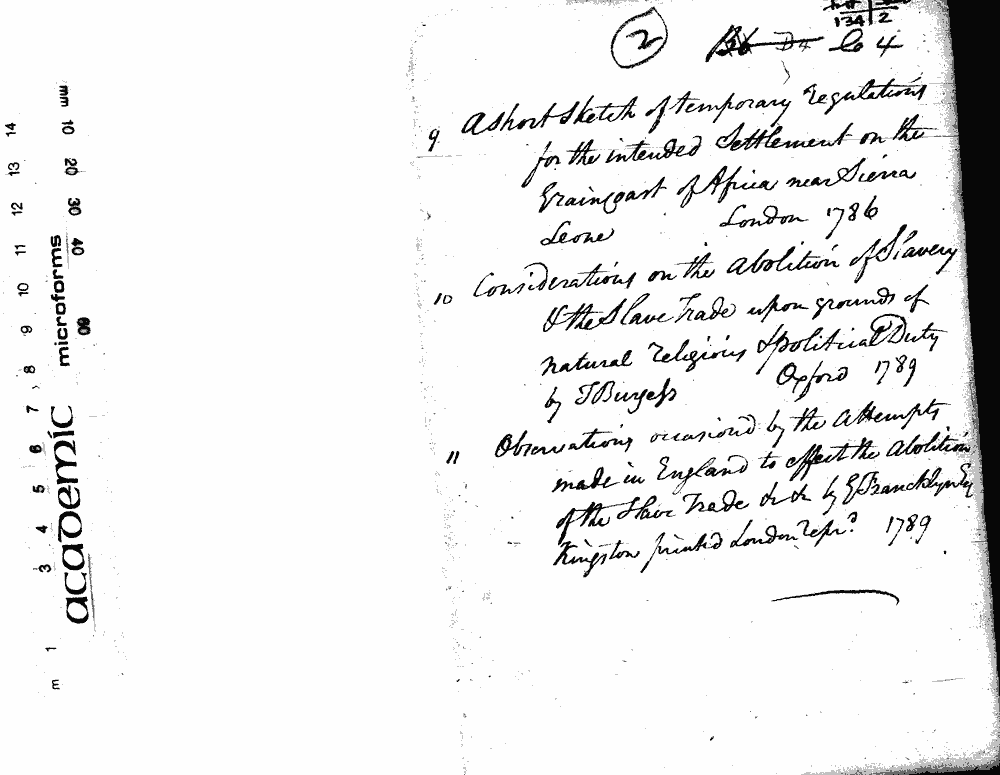 2
134 2
B6 D4 le 4
9 A short Sketch of temporary Regulations
for the intended Settlement on the
Graincoast of Africa near Sierra
Leone London 1786
10 Considerations on the Abolition of Slavery
& the Slave Trade upon grounds of
natural religious & political Duty
by T Burgess Oxford 1789
11 Observations occasion'd by the Attempts
made in England to effect the Abolition
of the Slave Trade &c &c by G Francklyn Esq
Kingston printed London repr.d 1789
mm 10 20 30 40
microforms
60
academic
m 1 3 4 5 6 7 8 9 10 11 12 13 14